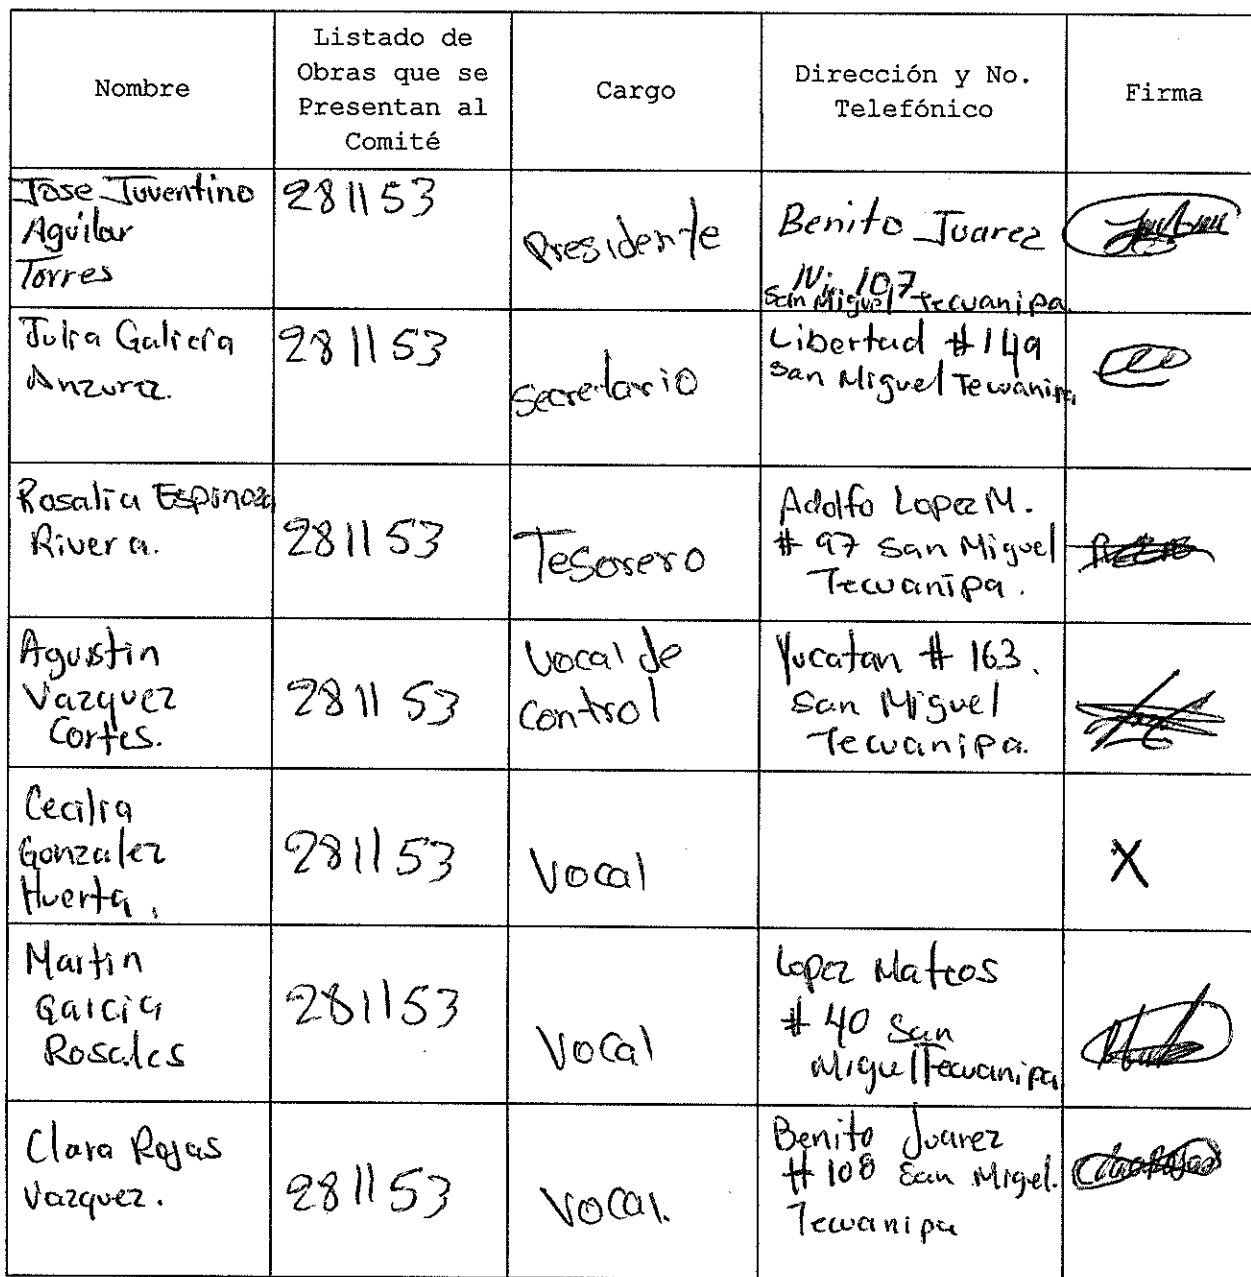 Nombre
Listado de
Obras que se
Presentan al
Comité
Cargo
Dirección y No.
Telefónico
Firma
Jose Juventino
Aguilar
Torres
281153
Presidente
Benito Juarez
No. 107
San Miguel Tecuanipa
Julia Galicia
Anzurez.
281153
Secretario
Libertad #149
San Miguel Tecuanipa
Rosalia Espinoza
Rivera.
281153
Tesorero
Adolfo Lopez M.
# 97 San Miguel
Tecuanipa.
Agustin
Vazquez
Cortes.
281153
Vocal de
Control
Yucatan # 163.
San Miguel
Tecuanipa.
Cecilia
Gonzalez
Huerta.
281153
Vocal
X
Martin
Garcia
Rosales
281153
Vocal
Lopez Mateos
# 40 San
Miguel Tecuanipa
Clara Rojas
Vazquez.
281153
Vocal.
Benito Juarez
# 108 San Migel.
Tecuanipa